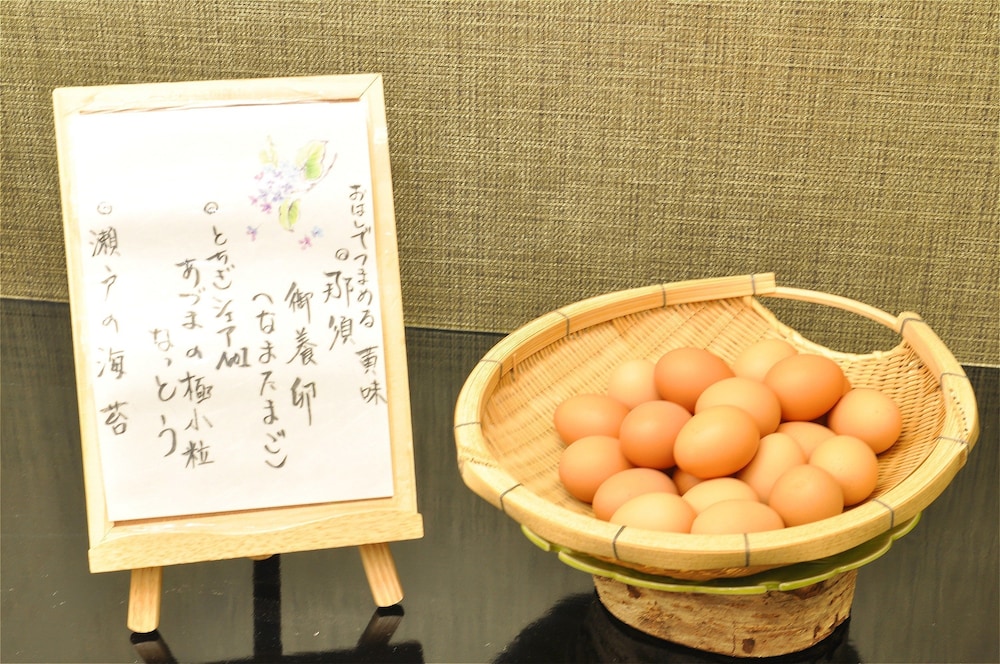 おはしでつまめる黄味
◎那須
御養卵
(なまたまご)
◎とちぎシェアNo.1
あづまの極小粒
なっとう
◎瀬戸の海苔